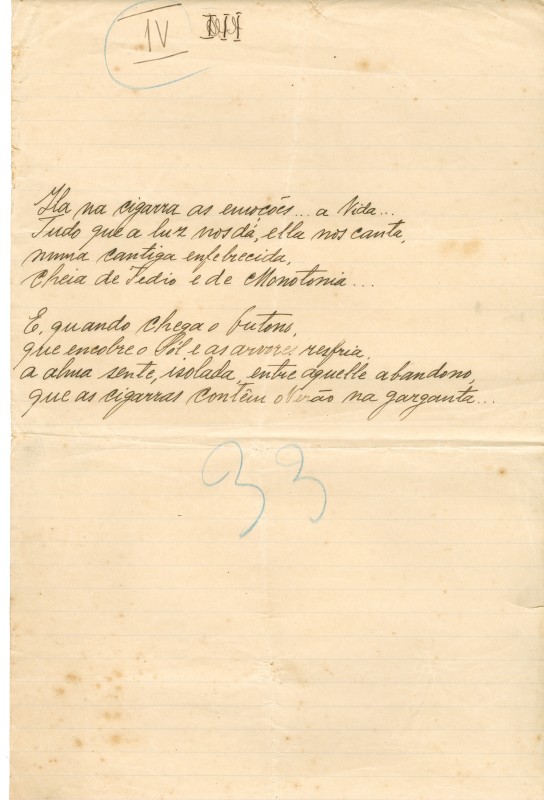 IV III
Ha na cigarra as emoções... a Vida...
Tudo que a luz nos dá, ella nos canta,
numa cantiga enfebrecida,
cheia de Tedio e de Monotonia...
E, quando chega o Outono,
que encobre o Sól e as arvores resfria,
a alma sente, isolada, entre aquelle abandono,
que as cigarras contêm o Verão na garganta...
33